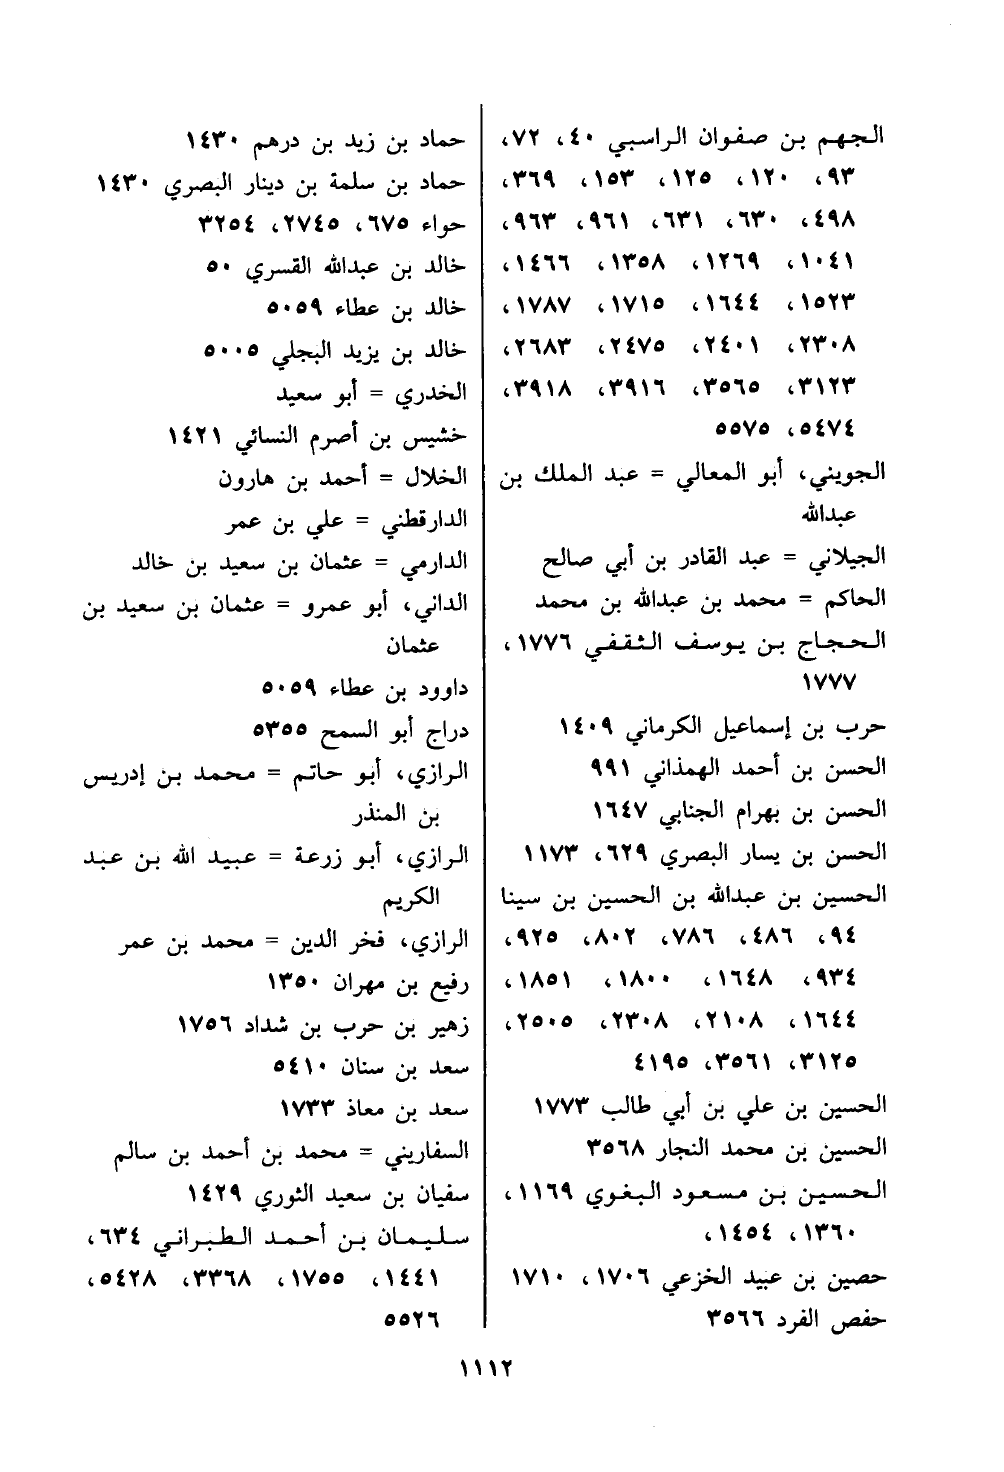 الجهم بن صفوان الراسبي ٤٠، ٧٢،
٩٣، ١٢٠، ١٢٥، ١٥٣، ٣٦٩،
٤٩٨، ٦٣٠، ٦٣١، ٩٦١، ٩٦٣،
١٠٤١، ١٢٦٩، ١٣٥٨، ١٤٦٦،
١٥٢٣، ١٦٤٤، ١٧١٥، ١٧٨٧،
٢٣٠٨، ٢٤٠١، ٢٤٧٥، ٢٦٨٣،
٣١٢٣، ٣٥٦٥، ٣٩١٦، ٣٩١٨،
٥٤٧٤، ٥٥٧٥
الجويني، أبو المعالي = عبد الملك بن
عبدالله
الجيلاني = عبد القادر بن أبي صالح
الحاكم = محمد بن عبدالله بن محمد
الحجاج بن يوسف الثقفي ١٧٧٦،
١٧٧٧
حرب بن إسماعيل الكرماني ١٤٠٩
الحسن بن أحمد الهمذاني ٩٩١
الحسن بن بهرام الجنابي ١٦٤٧
الحسن بن يسار البصري ٦٢٩، ١١٧٣
الحسين بن عبدالله بن الحسين بن سينا
٩٤، ٤٨٦، ٧٨٦، ٨٠٢، ٩٢٥،
٩٣٤، ١٦٤٨، ١٨٠٠، ١٨٥١،
١٦٤٤، ٢١٠٨، ٢٣٠٨، ٢٥٠٥،
٣١٢٥، ٣٥٦١، ٤١٩٥
الحسين بن علي بن أبي طالب ١٧٧٣
الحسين بن محمد النجار ٣٥٦٨
الحسين بن مسعود البغوي ١١٦٩،
١٣٦٠، ١٤٥٤،
حصين بن عبيد الخزعي ١٧٠٦، ١٧١٠
حفص الفرد ٣٥٦٦
حماد بن زيد بن درهم ١٤٣٠
حماد بن سلمة بن دينار البصري ١٤٣٠
حواء ٦٧٥، ٢٧٤٥، ٣٢٥٤
خالد بن عبدالله القسري ٥٠
خالد بن عطاء ٥٠٥٩
خالد بن يزيد البجلي ٥٠٠٥
الخدري = أبو سعيد
خشيس بن أصرم النسائي ١٤٢١
الخلال = أحمد بن هارون
الدارقطني = علي بن عمر
الدارمي = عثمان بن سعيد بن خالد
الداني، أبو عمرو = عثمان بن سعيد بن
عثمان
داوود بن عطاء ٥٠٥٩
دراج أبو السمح ٥٣٥٥
الرازي، أبو حاتم = محمد بن إدريس
بن المنذر
الرازي، أبو زرعة = عبيد الله بن عبد
الكريم
الرازي، فخر الدين = محمد بن عمر
رفيع بن مهران ١٣٥٠
زهير بن حرب بن شداد ١٧٥٦
سعد بن سنان ٥٤١٠
سعد بن معاذ ١٧٣٣
السفاريني = محمد بن أحمد بن سالم
سفيان بن سعيد الثوري ١٤٢٩
سليمان بن أحمد الطبراني ٦٣٤،
١٤٤١، ١٧٥٥، ٣٣٦٨، ٥٤٢٨،
٥٥٢٦
١١١٢